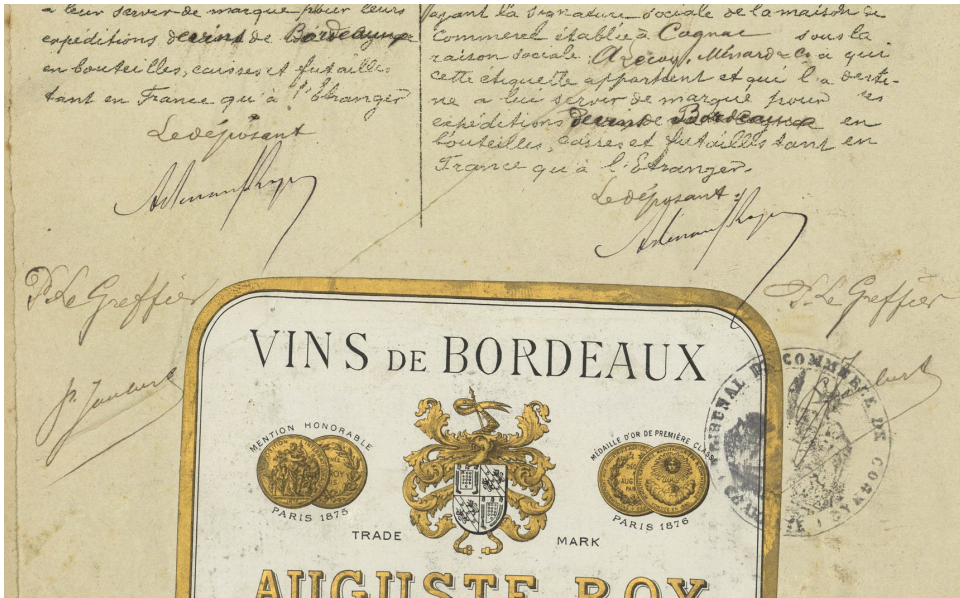 a leur servir de marque pour leurs
expéditions de vins de Bordeaux
en bouteilles, caisses et futailles
tant en France qu'à l'étranger
Le déposant
ayant la signature sociale de la maison de
commerce établie à Cognac sous la
raison sociale A. Ménard & Co à qui
cette étiquette appartient et qui l'a desti-
né à lui servir de marque pour ses
expéditions de vins de Bordeaux en
bouteilles, caisses et futailles tant en
France qu'à l'Etranger.
Le déposant
P. Le Greffier
P. Le Greffier
VINS DE BORDEAUX
MENTION HONORABLE
PARIS 1875
MÉDAILLE D'OR DE PREMIÈRE CLASSE
PARIS 1876
TRADE MARK
AUGUSTE ROY
TRIBUNAL DE COMMERCE DE COGNAC
CHARENTE